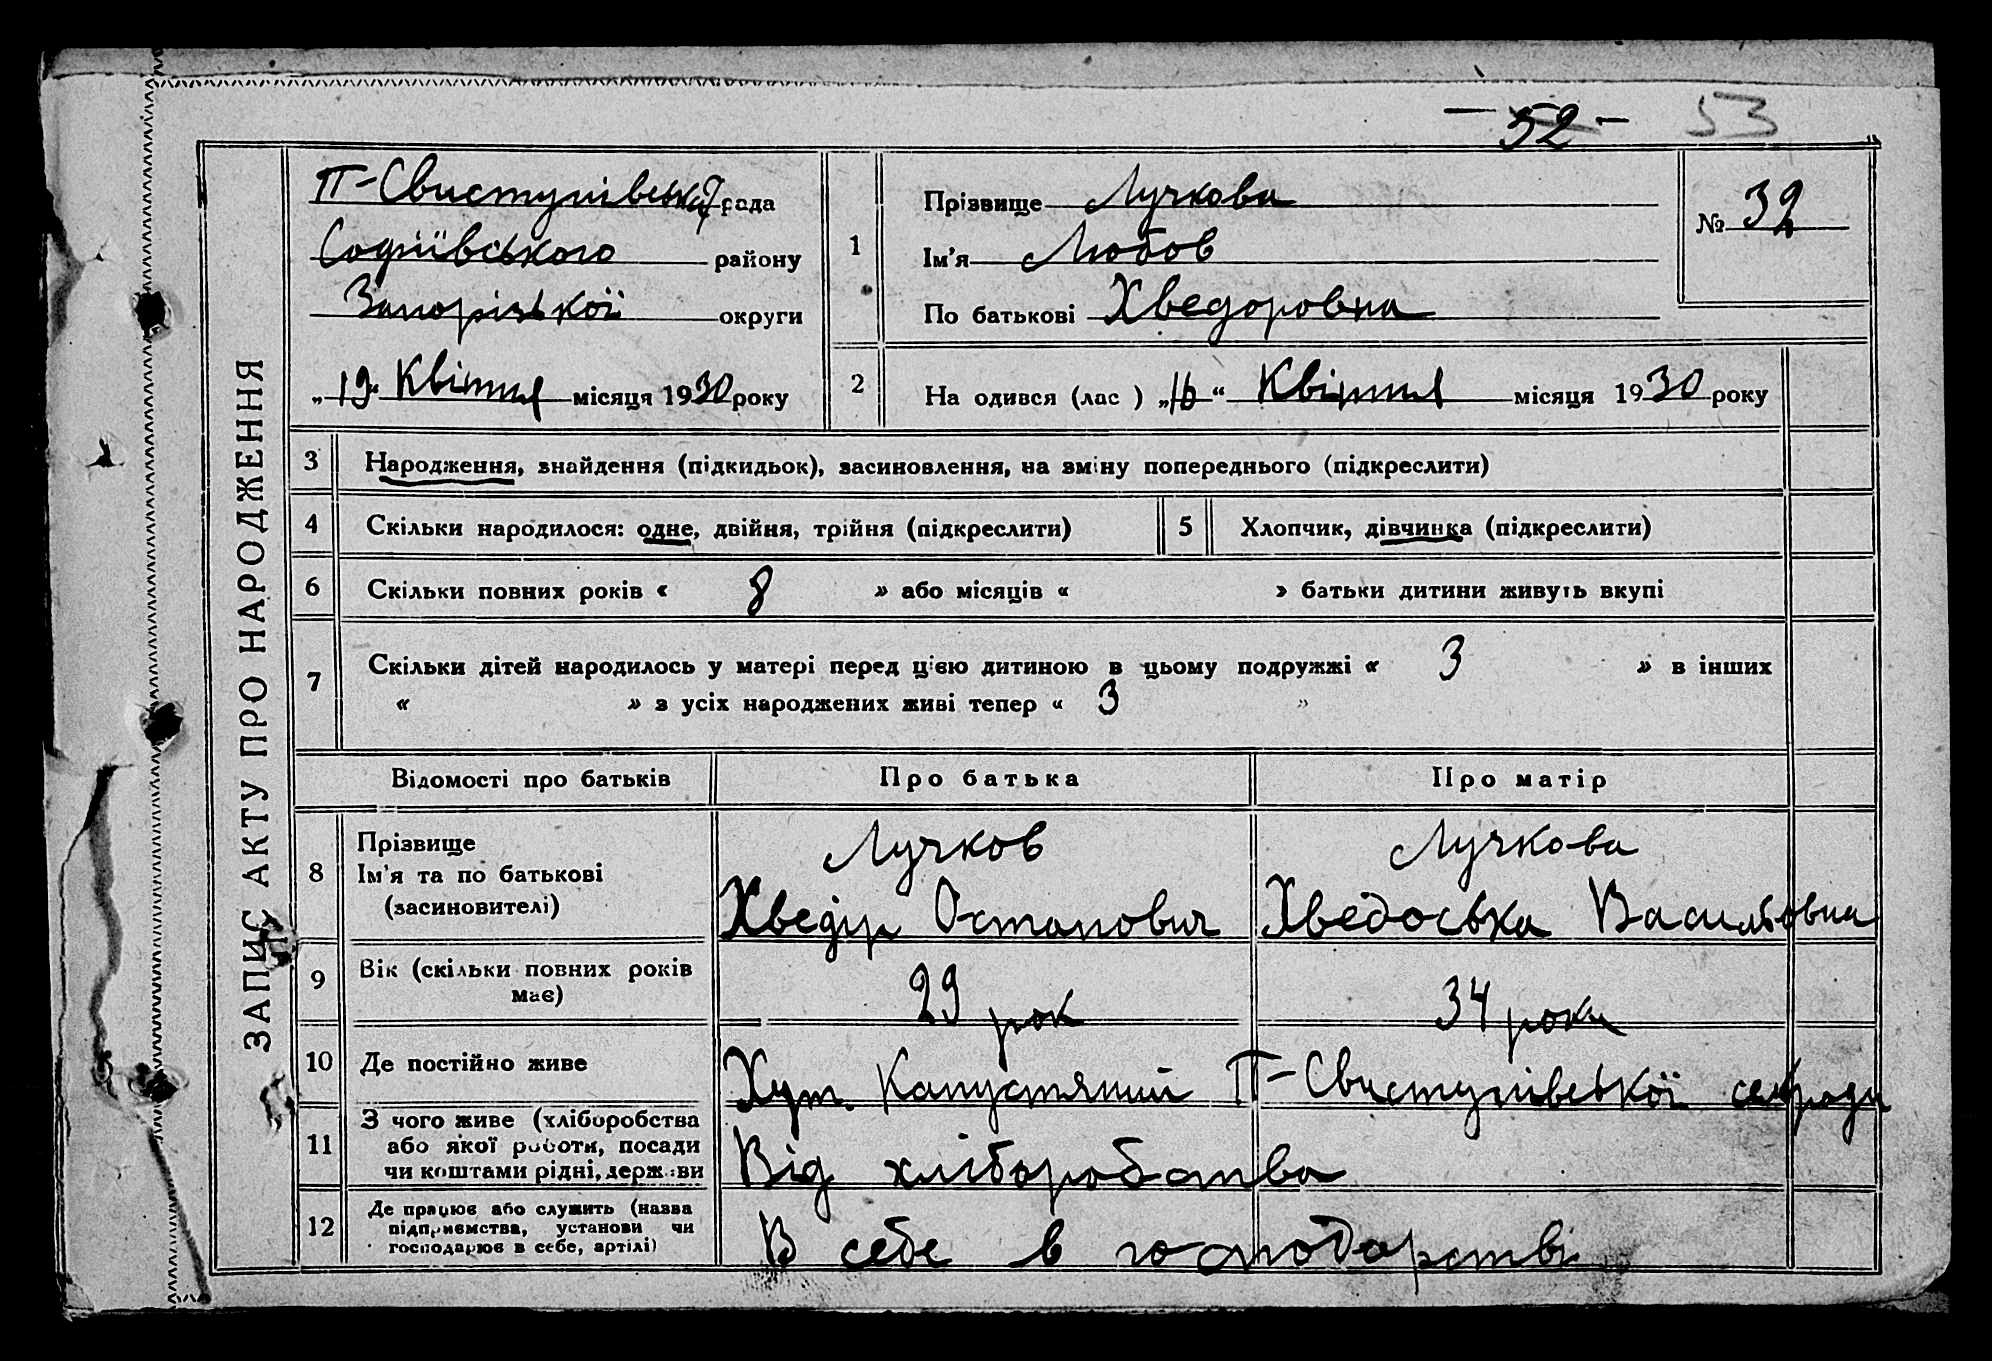 — 52 — 53
ЗАПИС АКТУ ПРО НАРОДЖЕННЯ
П-Свистунівська рада
Софіївського району
Запорізької округи
„19“ Квітня місяця 1930 року
1
Прізвище Лучкова
Ім'я Любов
По батькові Хведоровна
№ 32
2 На одився (лас ) „16“ Квітня місяця 1930 року
3 Народження, знайдення (підкидьок), засиновлення, на зміну попереднього (підкреслити)
4 Скільки народилося: одне, двійня, трійня (підкреслити) 5 Хлопчик, дівчинка (підкреслити)
6 Скільки повних років « 8 » або місяців « » батьки дитини живуть вкупі
7 Скільки дітей народилось у матері перед цією дитиною в цьому подружжі « 3 » в інших
« » з усіх народжених живі тепер « 3 »
Відомості про батьків Про батька Про матір
8 Прізвище
Ім'я та по батькові
(засиновителі)
Лучков
Хведір Остапович
Лучкова
Хведоська Васильовна
9 Вік (скільки повних років
має)
29 рок
34 роки
10 Де постійно живе Хут. Капустяний П-Свистунівської сельради
11 З чого живе (хліборобства
або якої роботи, посади
чи коштами рідні, держави
Від хліборобства
12 Де працює або служить (назва
підприємства, установи чи
господарює в себе, артілі)
В себе в господарстві